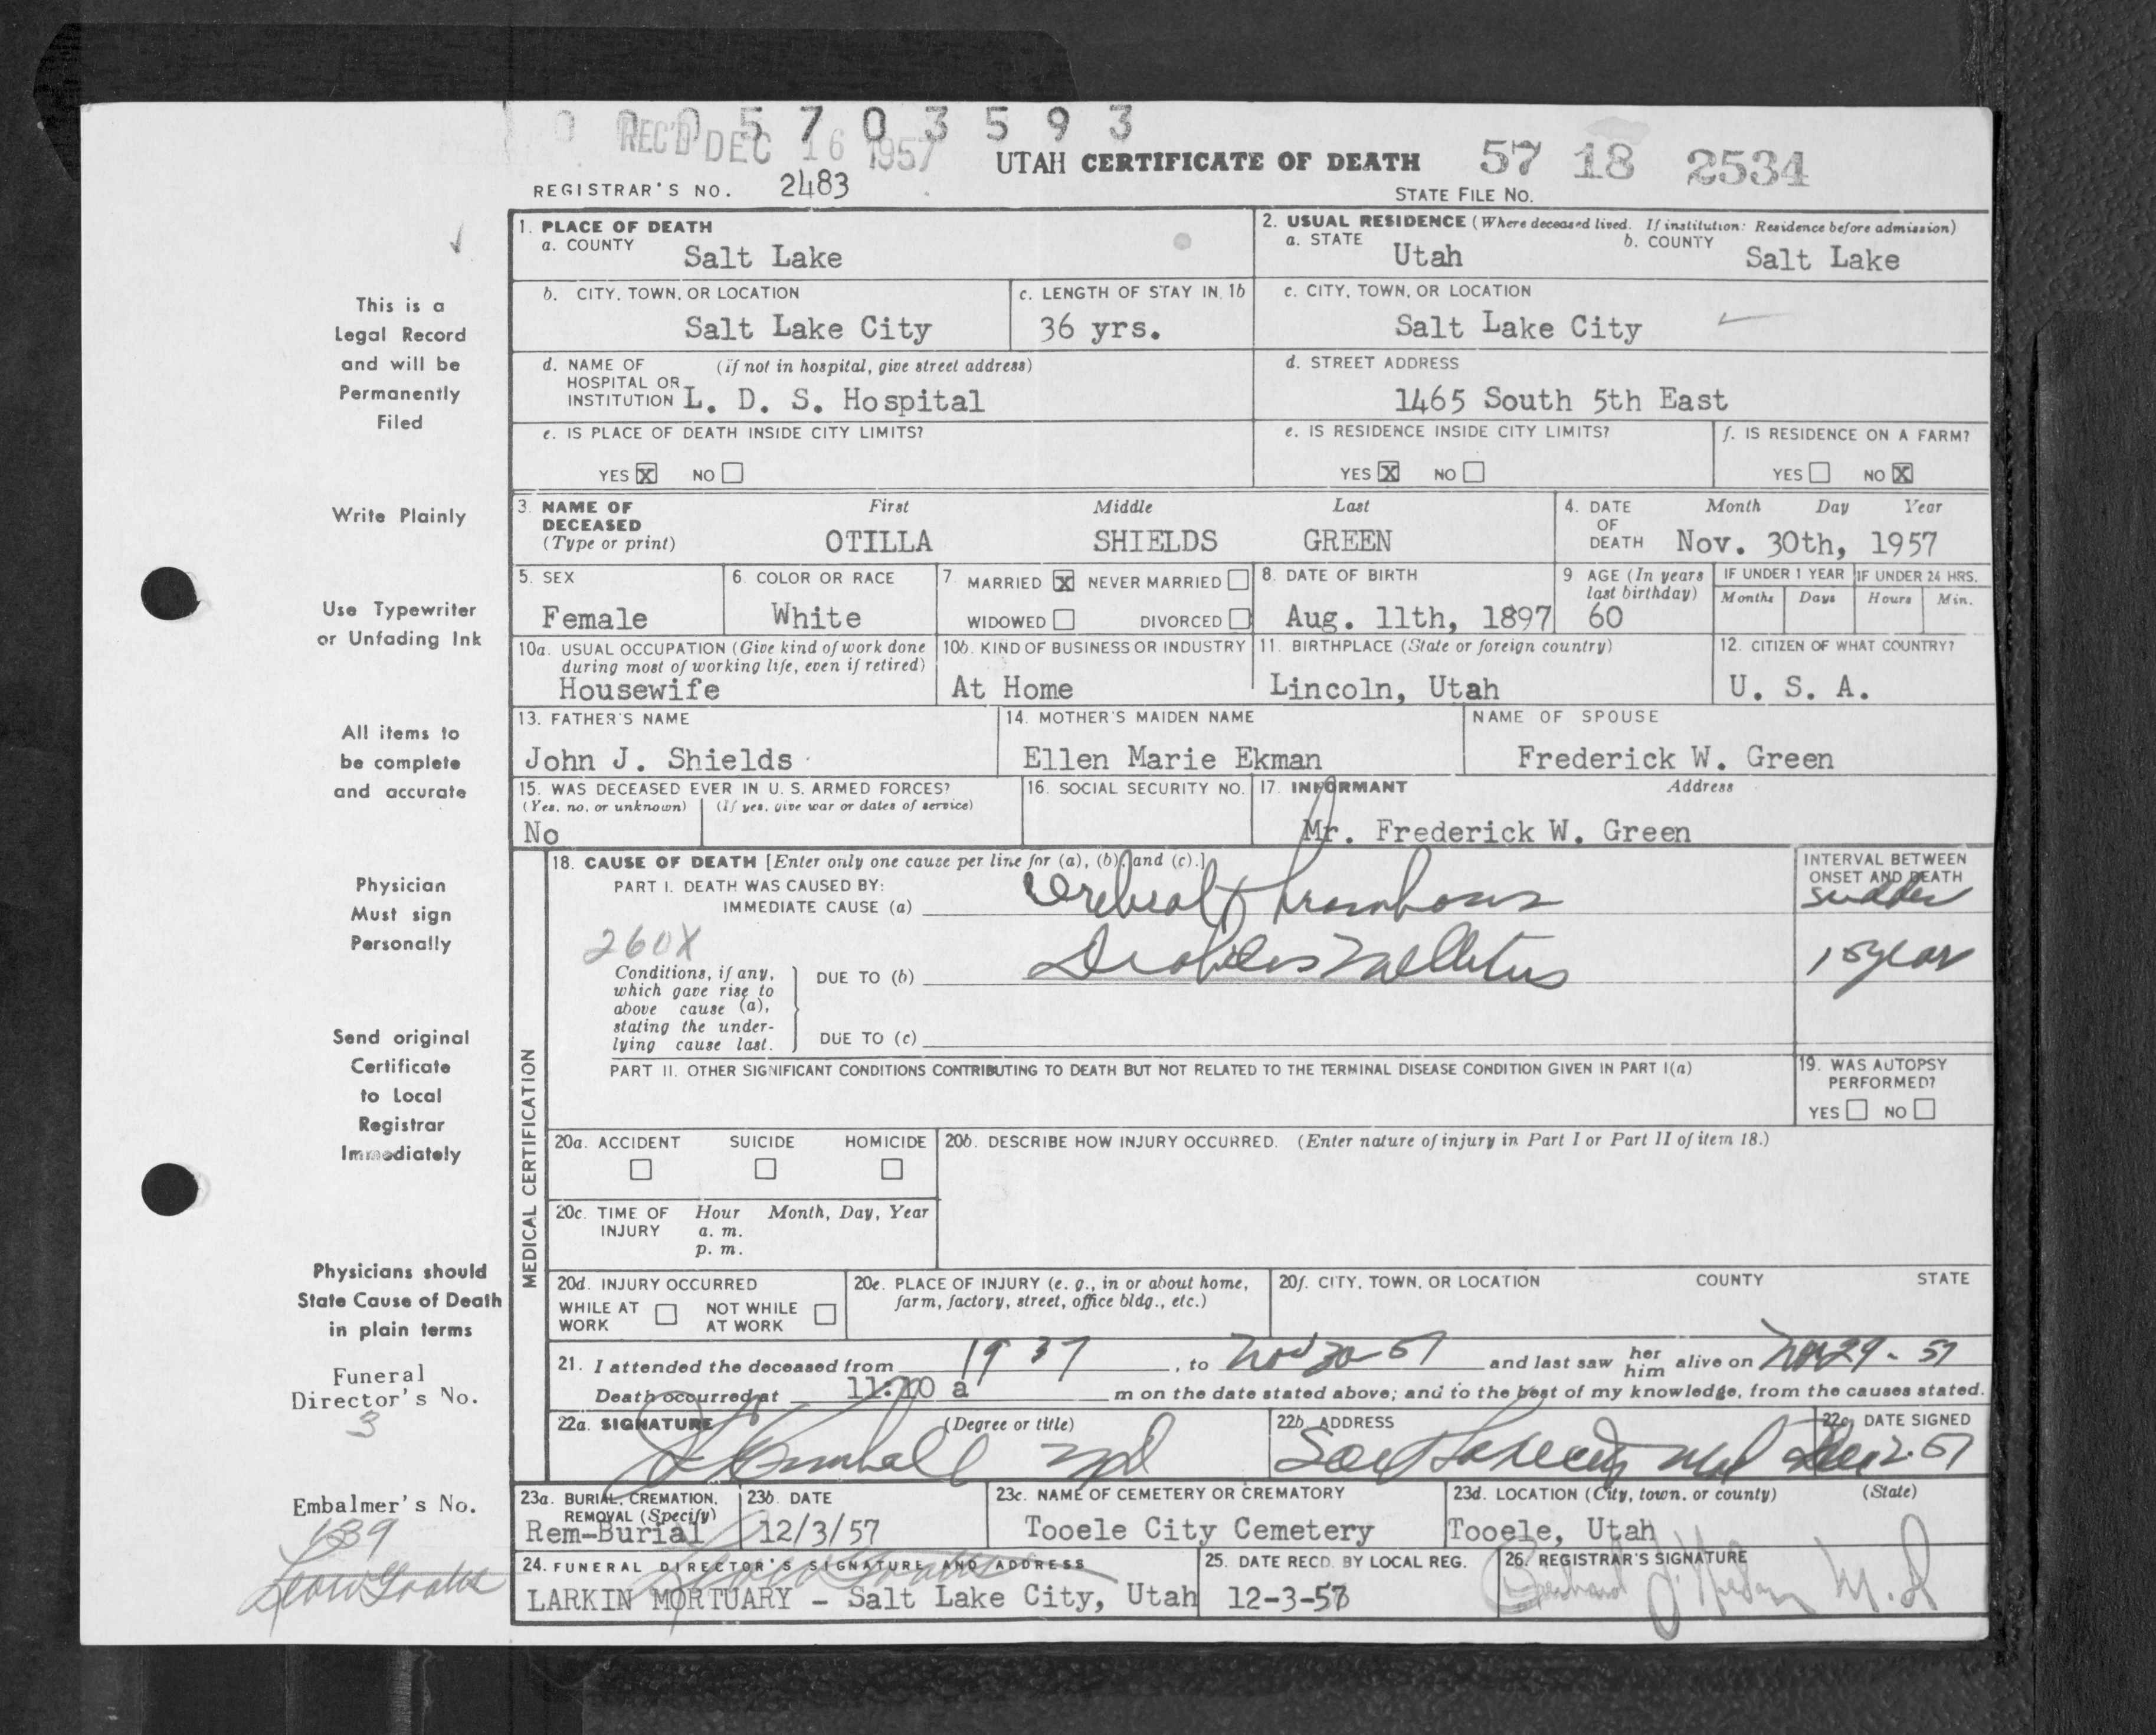 0 0 0 5 7 0 3 5 9 3
REC'D DEC 16 1957
UTAH CERTIFICATE OF DEATH 57 18 2534
REGISTRAR'S NO. 2483 STATE FILE NO.
1. PLACE OF DEATH 2. USUAL RESIDENCE (Where deceased lived. If institution: Residence before admission)
a. COUNTY Salt Lake a. STATE Utah b. COUNTY Salt Lake
b. CITY, TOWN, OR LOCATION c. LENGTH OF STAY IN 1b c. CITY, TOWN, OR LOCATION
Salt Lake City 36 yrs. Salt Lake City
d. NAME OF (if not in hospital, give street address) d. STREET ADDRESS
HOSPITAL OR
INSTITUTION L. D. S. Hospital 1465 South 5th East
e. IS PLACE OF DEATH INSIDE CITY LIMITS? e. IS RESIDENCE INSIDE CITY LIMITS? f. IS RESIDENCE ON A FARM?
YES X NO YES X NO YES NO X
3. NAME OF First Middle Last 4. DATE Month Day Year
DECEASED OF
(Type or print) OTILLA SHIELDS GREEN DEATH Nov. 30th, 1957
5. SEX 6. COLOR OR RACE 7 MARRIED X NEVER MARRIED 8. DATE OF BIRTH 9 AGE (In years IF UNDER 1 YEAR IF UNDER 24 HRS.
last birthday) Months Days Hours Min.
Female White WIDOWED DIVORCED Aug. 11th, 1897 60
10a. USUAL OCCUPATION (Give kind of work done 10b. KIND OF BUSINESS OR INDUSTRY 11. BIRTHPLACE (State or foreign country) 12. CITIZEN OF WHAT COUNTRY?
during most of working life, even if retired)
Housewife At Home Lincoln, Utah U. S. A.
13. FATHER'S NAME 14. MOTHER'S MAIDEN NAME NAME OF SPOUSE
John J. Shields Ellen Marie Ekman Frederick W. Green
15. WAS DECEASED EVER IN U. S. ARMED FORCES? 16. SOCIAL SECURITY NO. 17. INFORMANT Address
(Yes, no, or unknown) (If yes, give war or dates of service)
No Mr. Frederick W. Green
18. CAUSE OF DEATH [Enter only one cause per line for (a), (b), and (c).] INTERVAL BETWEEN
ONSET AND DEATH
PART I. DEATH WAS CAUSED BY:
IMMEDIATE CAUSE (a) Cerebral Thrombosis sudden
260X
Conditions, if any, DUE TO (b) Diabetes Mellitus 15 year
which gave rise to
above cause (a),
stating the under-
lying cause last. DUE TO (c)
PART II. OTHER SIGNIFICANT CONDITIONS CONTRIBUTING TO DEATH BUT NOT RELATED TO THE TERMINAL DISEASE CONDITION GIVEN IN PART I(a) 19. WAS AUTOPSY
PERFORMED?
YES NO
MEDICAL CERTIFICATION
20a. ACCIDENT SUICIDE HOMICIDE 20b. DESCRIBE HOW INJURY OCCURRED. (Enter nature of injury in Part I or Part II of item 18.)
20c. TIME OF Hour Month, Day, Year
INJURY a. m.
p. m.
20d. INJURY OCCURRED 20e. PLACE OF INJURY (e. g., in or about home, 20f. CITY, TOWN, OR LOCATION COUNTY STATE
WHILE AT NOT WHILE farm, factory, street, office bldg., etc.)
WORK AT WORK
21. I attended the deceased from 1937, to Nov 30-57 and last saw her him alive on Nov 29 - 57
Death occurred at a m on the date stated above; and to the best of my knowledge, from the causes stated.
22a. SIGNATURE (Degree or title) 22b. ADDRESS 22c. DATE SIGNED
Kimball MD Salt Lake City Dec 2-57
23a. BURIAL, CREMATION, 23b. DATE 23c. NAME OF CEMETERY OR CREMATORY 23d. LOCATION (City, town, or county) (State)
REMOVAL (Specify)
Rem-Burial 12/3/57 Tooele City Cemetery Tooele, Utah
24. FUNERAL DIRECTOR'S SIGNATURE AND ADDRESS 25. DATE RECD. BY LOCAL REG. 26. REGISTRAR'S SIGNATURE
LARKIN MORTUARY - Salt Lake City, Utah 12-3-57 M.D
This is a
Legal Record
and will be
Permanently
Filed
Write Plainly
Use Typewriter
or Unfading Ink
All items to
be complete
and accurate
Physician
Must sign
Personally
Send original
Certificate
to Local
Registrar
Immediately
Physicians should
State Cause of Death
in plain terms
Funeral
Director's No.
3
Embalmer's No.
139